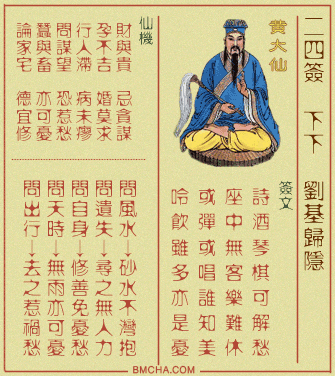 二四簽 下下 劉基歸隱
黃大仙
簽文
詩酒琴棋可解愁
座中無客樂難休
或彈或唱誰知美
吟飲雖多亦是憂
仙機
財與貴 忌貪謀
孕不吉 婚莫求
行人滯 病未瘳
問謀望 恐惹愁
蠶與畜 亦可憂
論家宅 德宜修
問風水→砂水不灣抱
問遺失→尋之無人力
問自身→修善免憂愁
問天時→無雨亦可憂
問出行→去之惹禍愁
BMCHA.COM